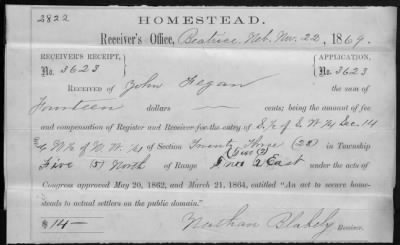 2822
HOMESTEAD.
Receiver's Office, Beatrice Neb. Nov. 22, 1869.
RECEIVER'S RECEIPT, APPLICATION,
No. 3623 No. 3623
RECEIVED OF John Fegan the sum of
Fourteen dollars — cents; being the amount of fee
and compensation of Register and Receiver for the entry of S. ½ of S. W. ¼ Sec. 14
& N. ½ of N. W. ¼ of Section Twenty Three (23) in Township
Five (5) North of Range East under the acts of
Congress approved May 20, 1862, and March 21, 1864, entitled "An act to secure home-
steads to actual settlers on the public domain."
$14— Nathan Blakely Receiver.